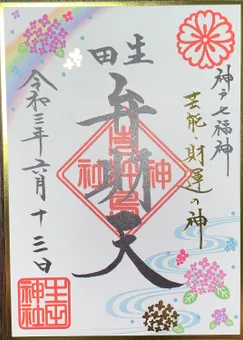 神戸七福神
芸能・財運の神
生田
弁財天
生田神社
令和三年六月十三日
生田神社